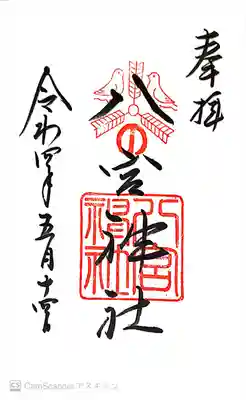 奉拝
八宮神社
令和四年五月十四日
八宮神社
CamScannerでスキャン